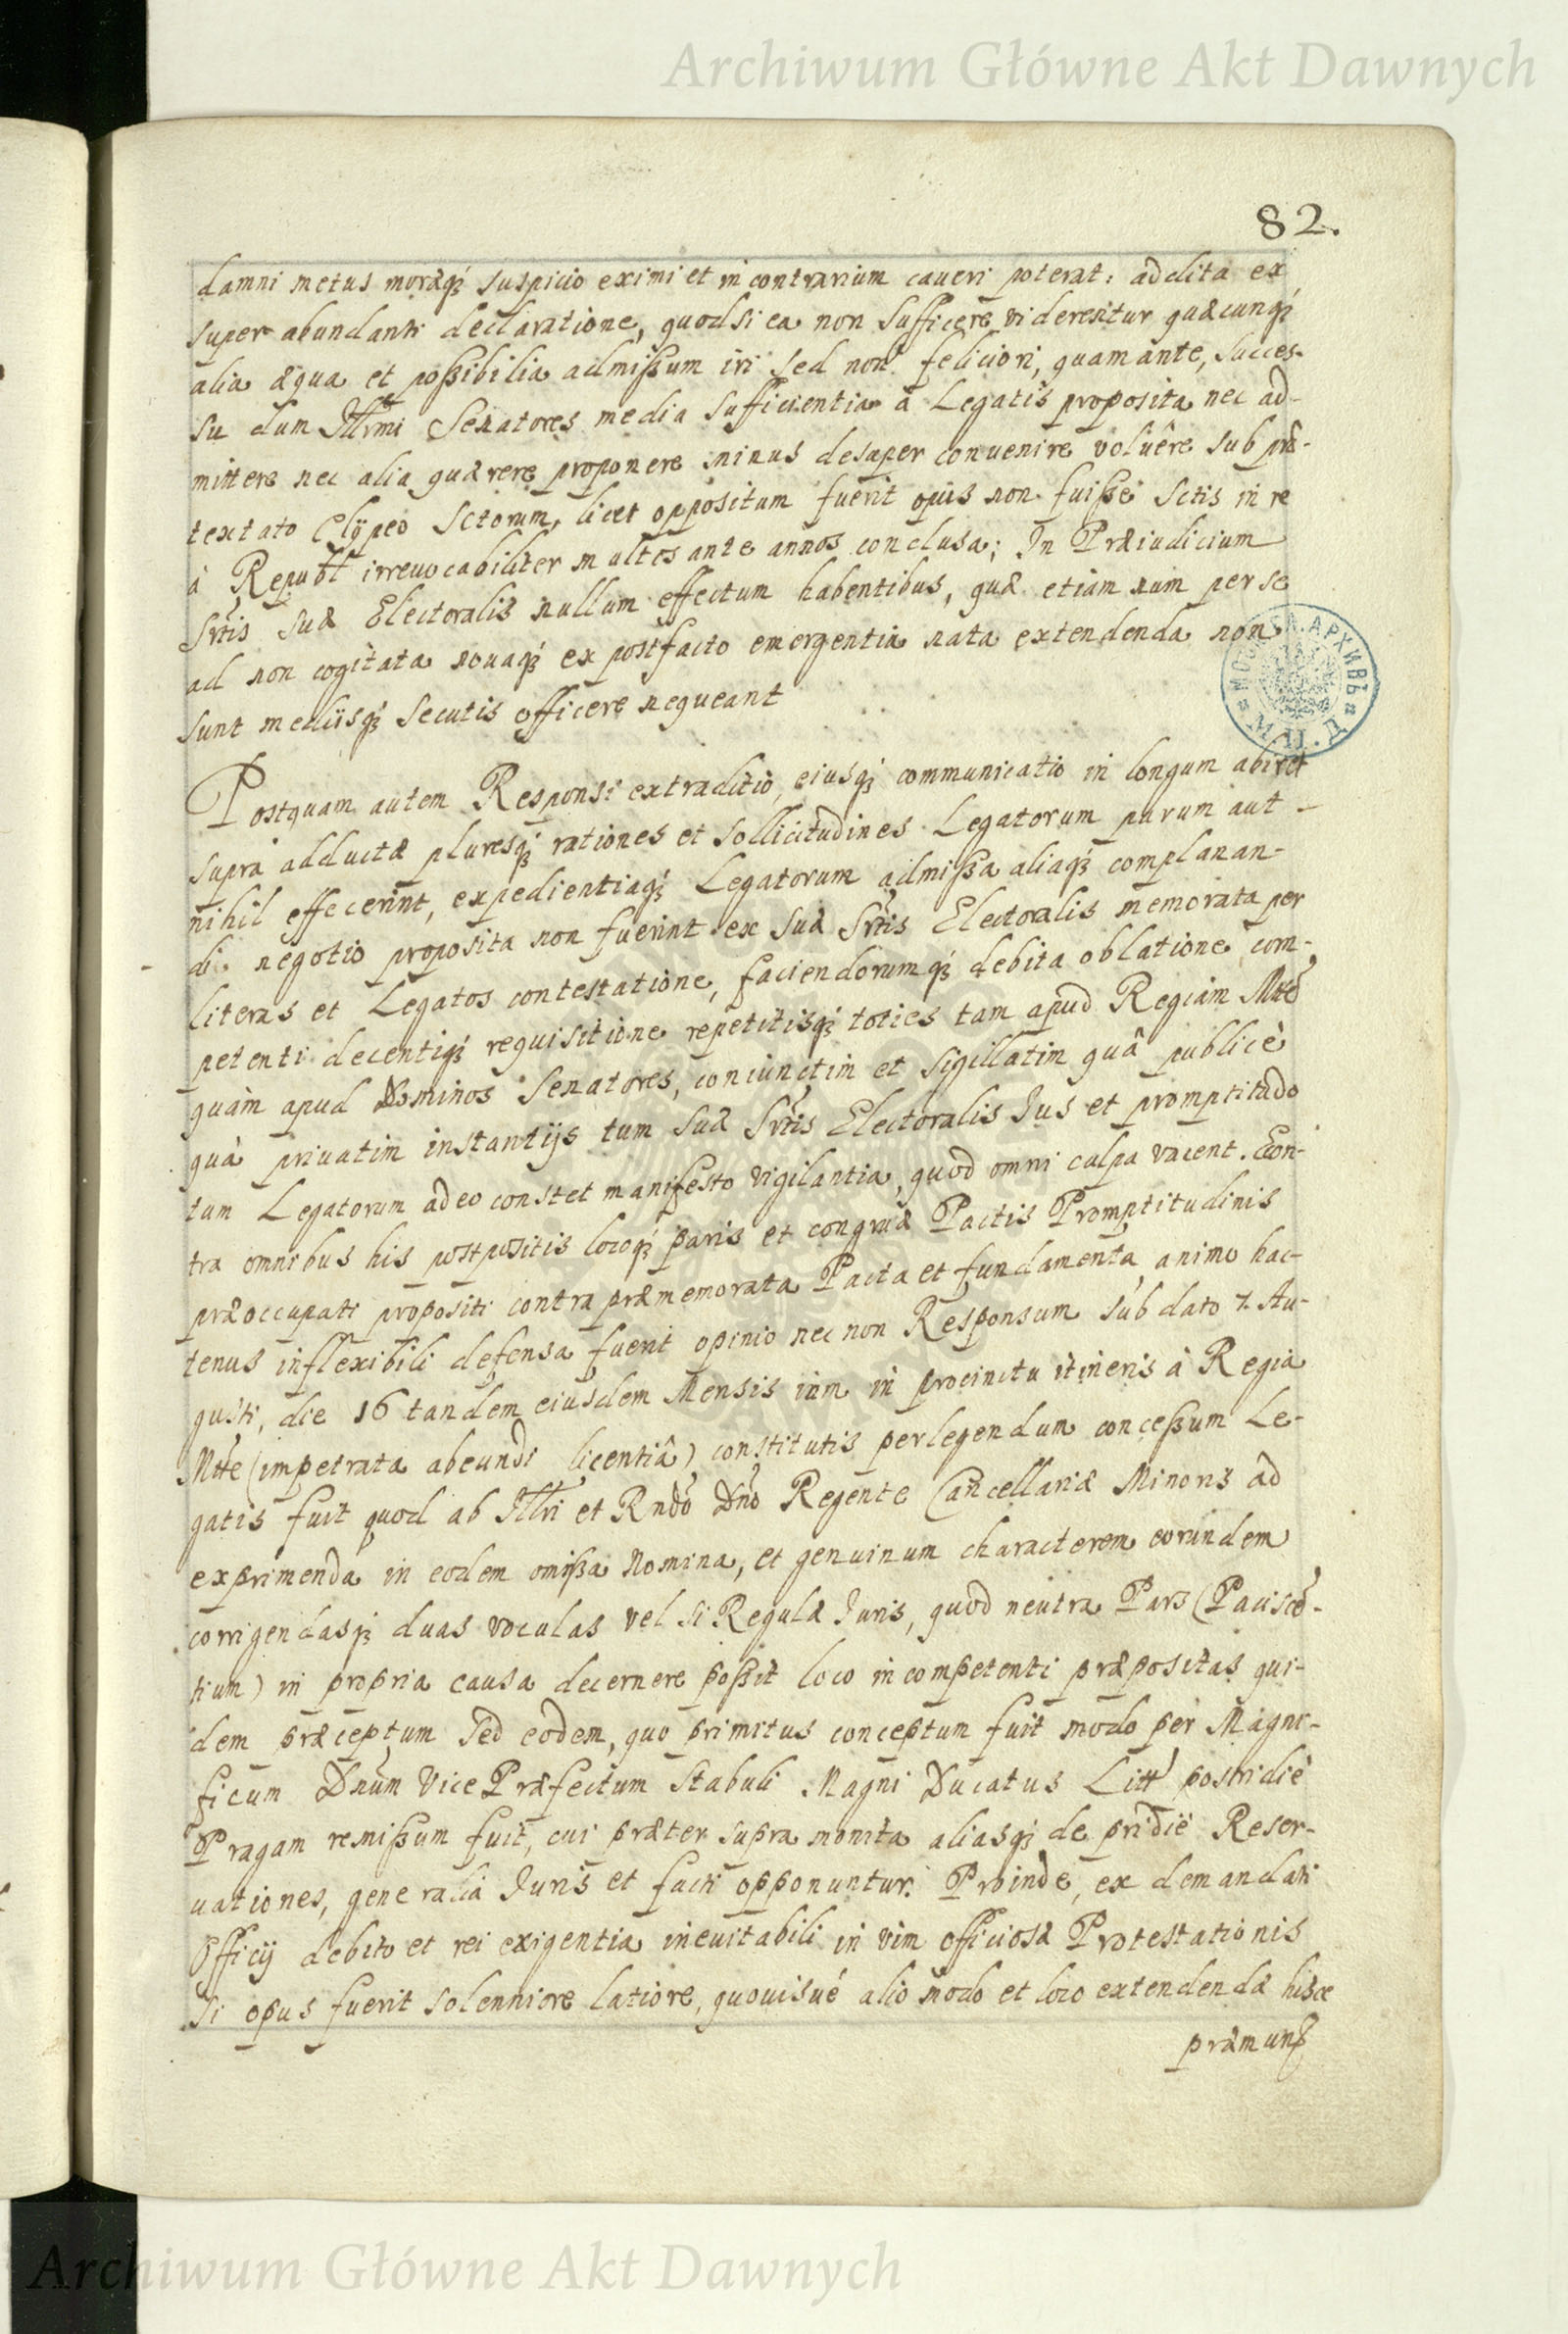 Archiwum Główne Akt Dawnych
82.
damni metus moræq3 suspicio eximi et in contrarium caveri poterat: addita ex
super abundanti declaratione, quodsi ea non sufficere viderentur quæcunq3
alia æqua et possibilia admissum iri sed non feliciori, quam ante, succes-
su dum Illrmi Senatores media sufficientia à Legatis proposita nec ad-
mittere nec alia quærere proponere minus desuper convenire volûere sub præ-
textato Clÿpeo Sctorum, licet oppositum fuerit opus non fuisse Sctis in re
à Republ irrevocabiliter multos ante annos conclusa; In Præiudicium
Srtis Suæ Electoralis nullum effectum habentibus, quæ etiam num per se
ad non cogitata novaq3 ex postfacto emergentia nata extendenda non
sunt mediisq3 secutis officere nequeant
Postquam autem Responsi extraditio, eiusq3 communicatio in longum abiret
supra adductæ pluresq3 rationes et sollicitudines Legatorum parum aut
nihil effecerint, expedientiaq3 Legatorum admissa aliaq3 complanan-
di negotio proposita non fuerint ex Suæ Srtis Electoralis memorata per
literas et Legatos contestatione, faciendorumq3 debita oblatione com-
petenti decentiq3 requisitione repetitisq3 toties tam apud Regiam Mtte
quàm apud Dominos Senatores, coniunctim et sigillatim quâ publicè
quà privatim instantijs tum Suæ Srtis Electoralis Jus et promptitudo
tum Legatorum adeo constet manifesto vigilantia, quod omni culpa vacent. Con-
tra omnibus his postpositis locoq3 paris et congruæ Pactis Promptitudinis
præoccupati propositi contra præmemorata Pacta et fundamenta animo hac-
tenus inflexibili defensa fuerit opinio nec non Responsum sub dato 7. Au-
gusti, die 16 tandem eiusdem Mensis iam in procinctu itineris à Regia
Mtte (impetrata abeundi licentiâ) constitutis perlegendum concessum Le-
gatis fuit quod ab Illri et Rndo Dno Regente Cancellariæ Minoris ad
exprimenda in eodem omissa Nomina, et genuinum characterem eorundem
corrigendasq3 duas voculas vel si Regulæ Juris, quod neutra Pars (Paciscē-
tium) in propria causa decernere possit loco incompetenti præpositas qui-
dem præceptum sed eodem, quo primitus conceptum fuit modo per Magni-
ficum Dnum Vice Præfectum Stabuli Magni Ducatus Litt postridie
Pragam remissum fuit, cui præter supra monita aliasq3 de pridiè Reser-
vationes, generalia Juris et facti opponuntur. Proinde, ex demandati
Officij debito et rei exigentia inevitabili in vim officiosæ Protestationis
si opus fuerit solenniore latiore, quovisvé alio modo et loco extendendæ hisce
Archiwum Główne Akt Dawnych